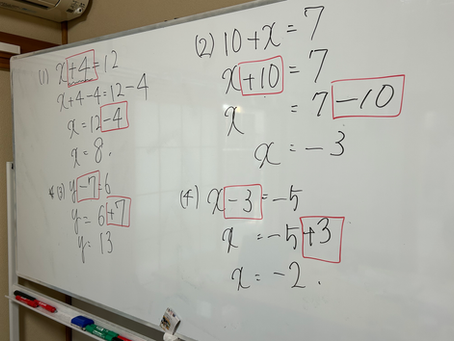 (1) x+4=12
x+4-4=12-4
x=12-4
x=8.
(2) 10+x=7
x+10=7
x =7-10
x=-3
(3) y-7=6
y=6+7
y=13
(4) x-3=-5
x=-5+3
x=-2.